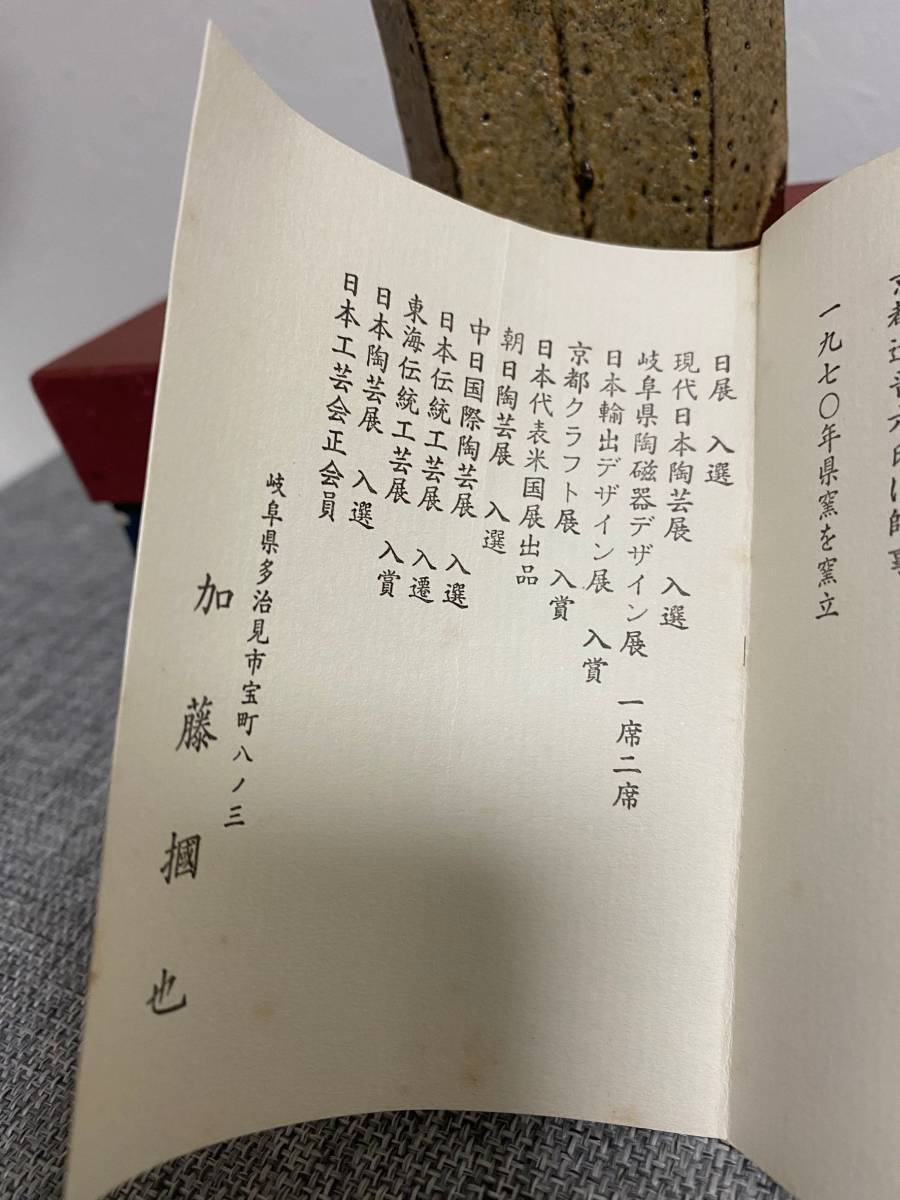 一九七〇年県窯を窯立
日展 入選
現代日本陶芸展 入選
岐阜県陶磁器デザイン展 一席二席
日本輸出デザイン展 入賞
京都クラフト展 入賞
日本代表米国展出品
朝日陶芸展 入選
中日国際陶芸展 入選
日本伝統工芸展 入遷
東海伝統工芸展 入賞
日本陶芸展 入選
日本工芸会正会員
岐阜県多治見市宝町八ノ三
加藤摑也